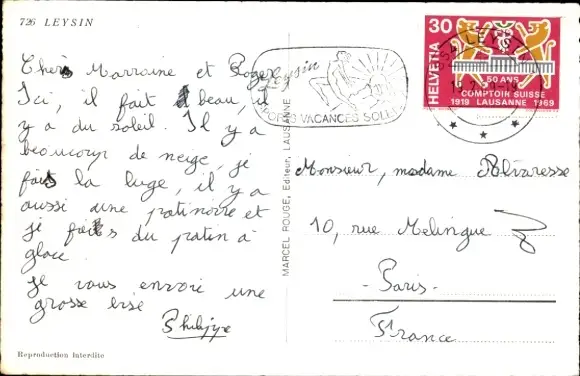 726 LEYSIN
Chers Marraine et Roger
Ici, il fait beau, il
y a du soleil. Il y a
beaucoup de neige, je
fais la luge, il y a
aussi une patinoire et
je fais du patin à
glace
je vous envoie une
grosse bise
Philippe
Reproduction interdite
MARCEL ROUGE, Editeur, LAUSANNE
Leysin
SPORTS VACANCES SOLEIL
1854 LEYSIN
HELVETIA
30
50 ANS
COMPTOIR SUISSE
1919 LAUSANNE 1969
Monsieur, madame Alvaresse
10, rue Melingue
- Paris -
France